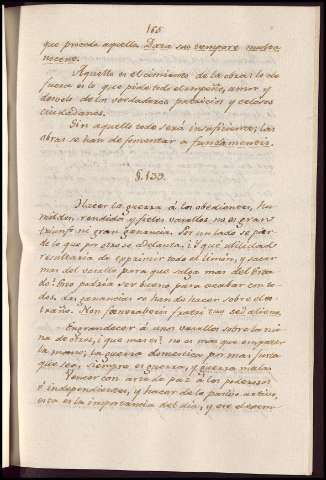 165.
que proceda aquella
necere.
Aquello es el cimiento de la obra: lo de
fuera es lo que pide todo el empeño, amor y
desvelo de los verdaderos patricios y celosos
ciudadanos.
Sin aquello todo será insuficiente; las
obras se han de fomentar a fundamentis.
§. 133.
Hacer la guerra á los obedientes, hu-
mildes, rendidos y fieles vasallos no es gran
triunfo ni gran ganancia. Por un lado se pier-
de lo que por otro se adelanta. ¿Y qué utilidad
resultaria de exprimir todo el limon, y sacar
mas del vasallo para que salga mas del Esta-
do? Eso podria ser bueno para acabar con to-
dos. Las ganancias se han de hacer sobre el es-
traño. Non
Engrandecer á unos vasallos sobre la rui-
na de otros, ¿que mas es? no es mas que empatar
la mano; la guerra domestica por mas justa
que sea, siempre es guerra, y guerra mala.
Vencer con arte de paz á los poderosos
é independientes, y hacer de la
esta es la importancia del dia, y ese el